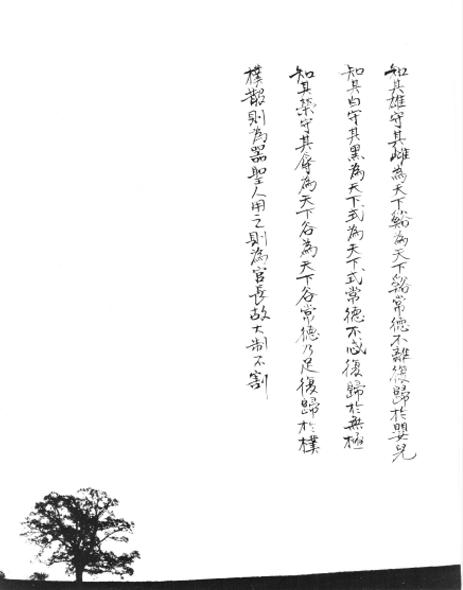 知其雄守其雌為天下谿為天下谿常德不離復歸於嬰兒
知其白守其黑為天下式為天下式常德不忒復歸於無極
知其榮守其辱為天下谷為天下谷常德乃足復歸於樸
樸散則為器聖人用之則為官長故大制不割